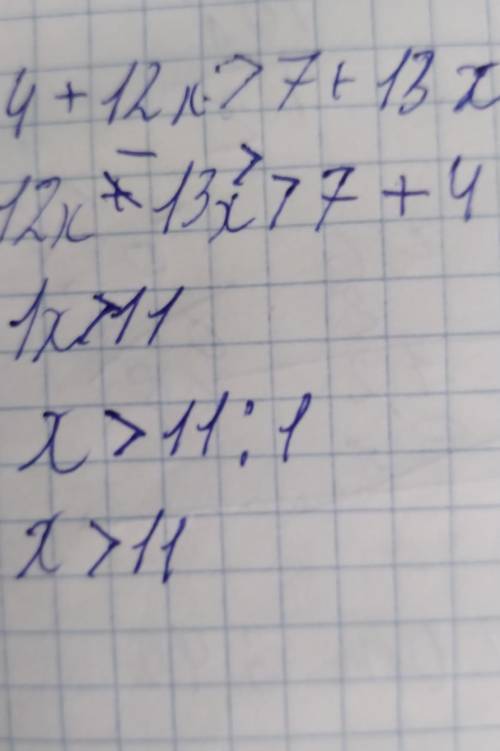 4 + 12x > 7 + 13x
12x - 13x > 7 + 4
1x > 11
x > 11 : 1
x > 11